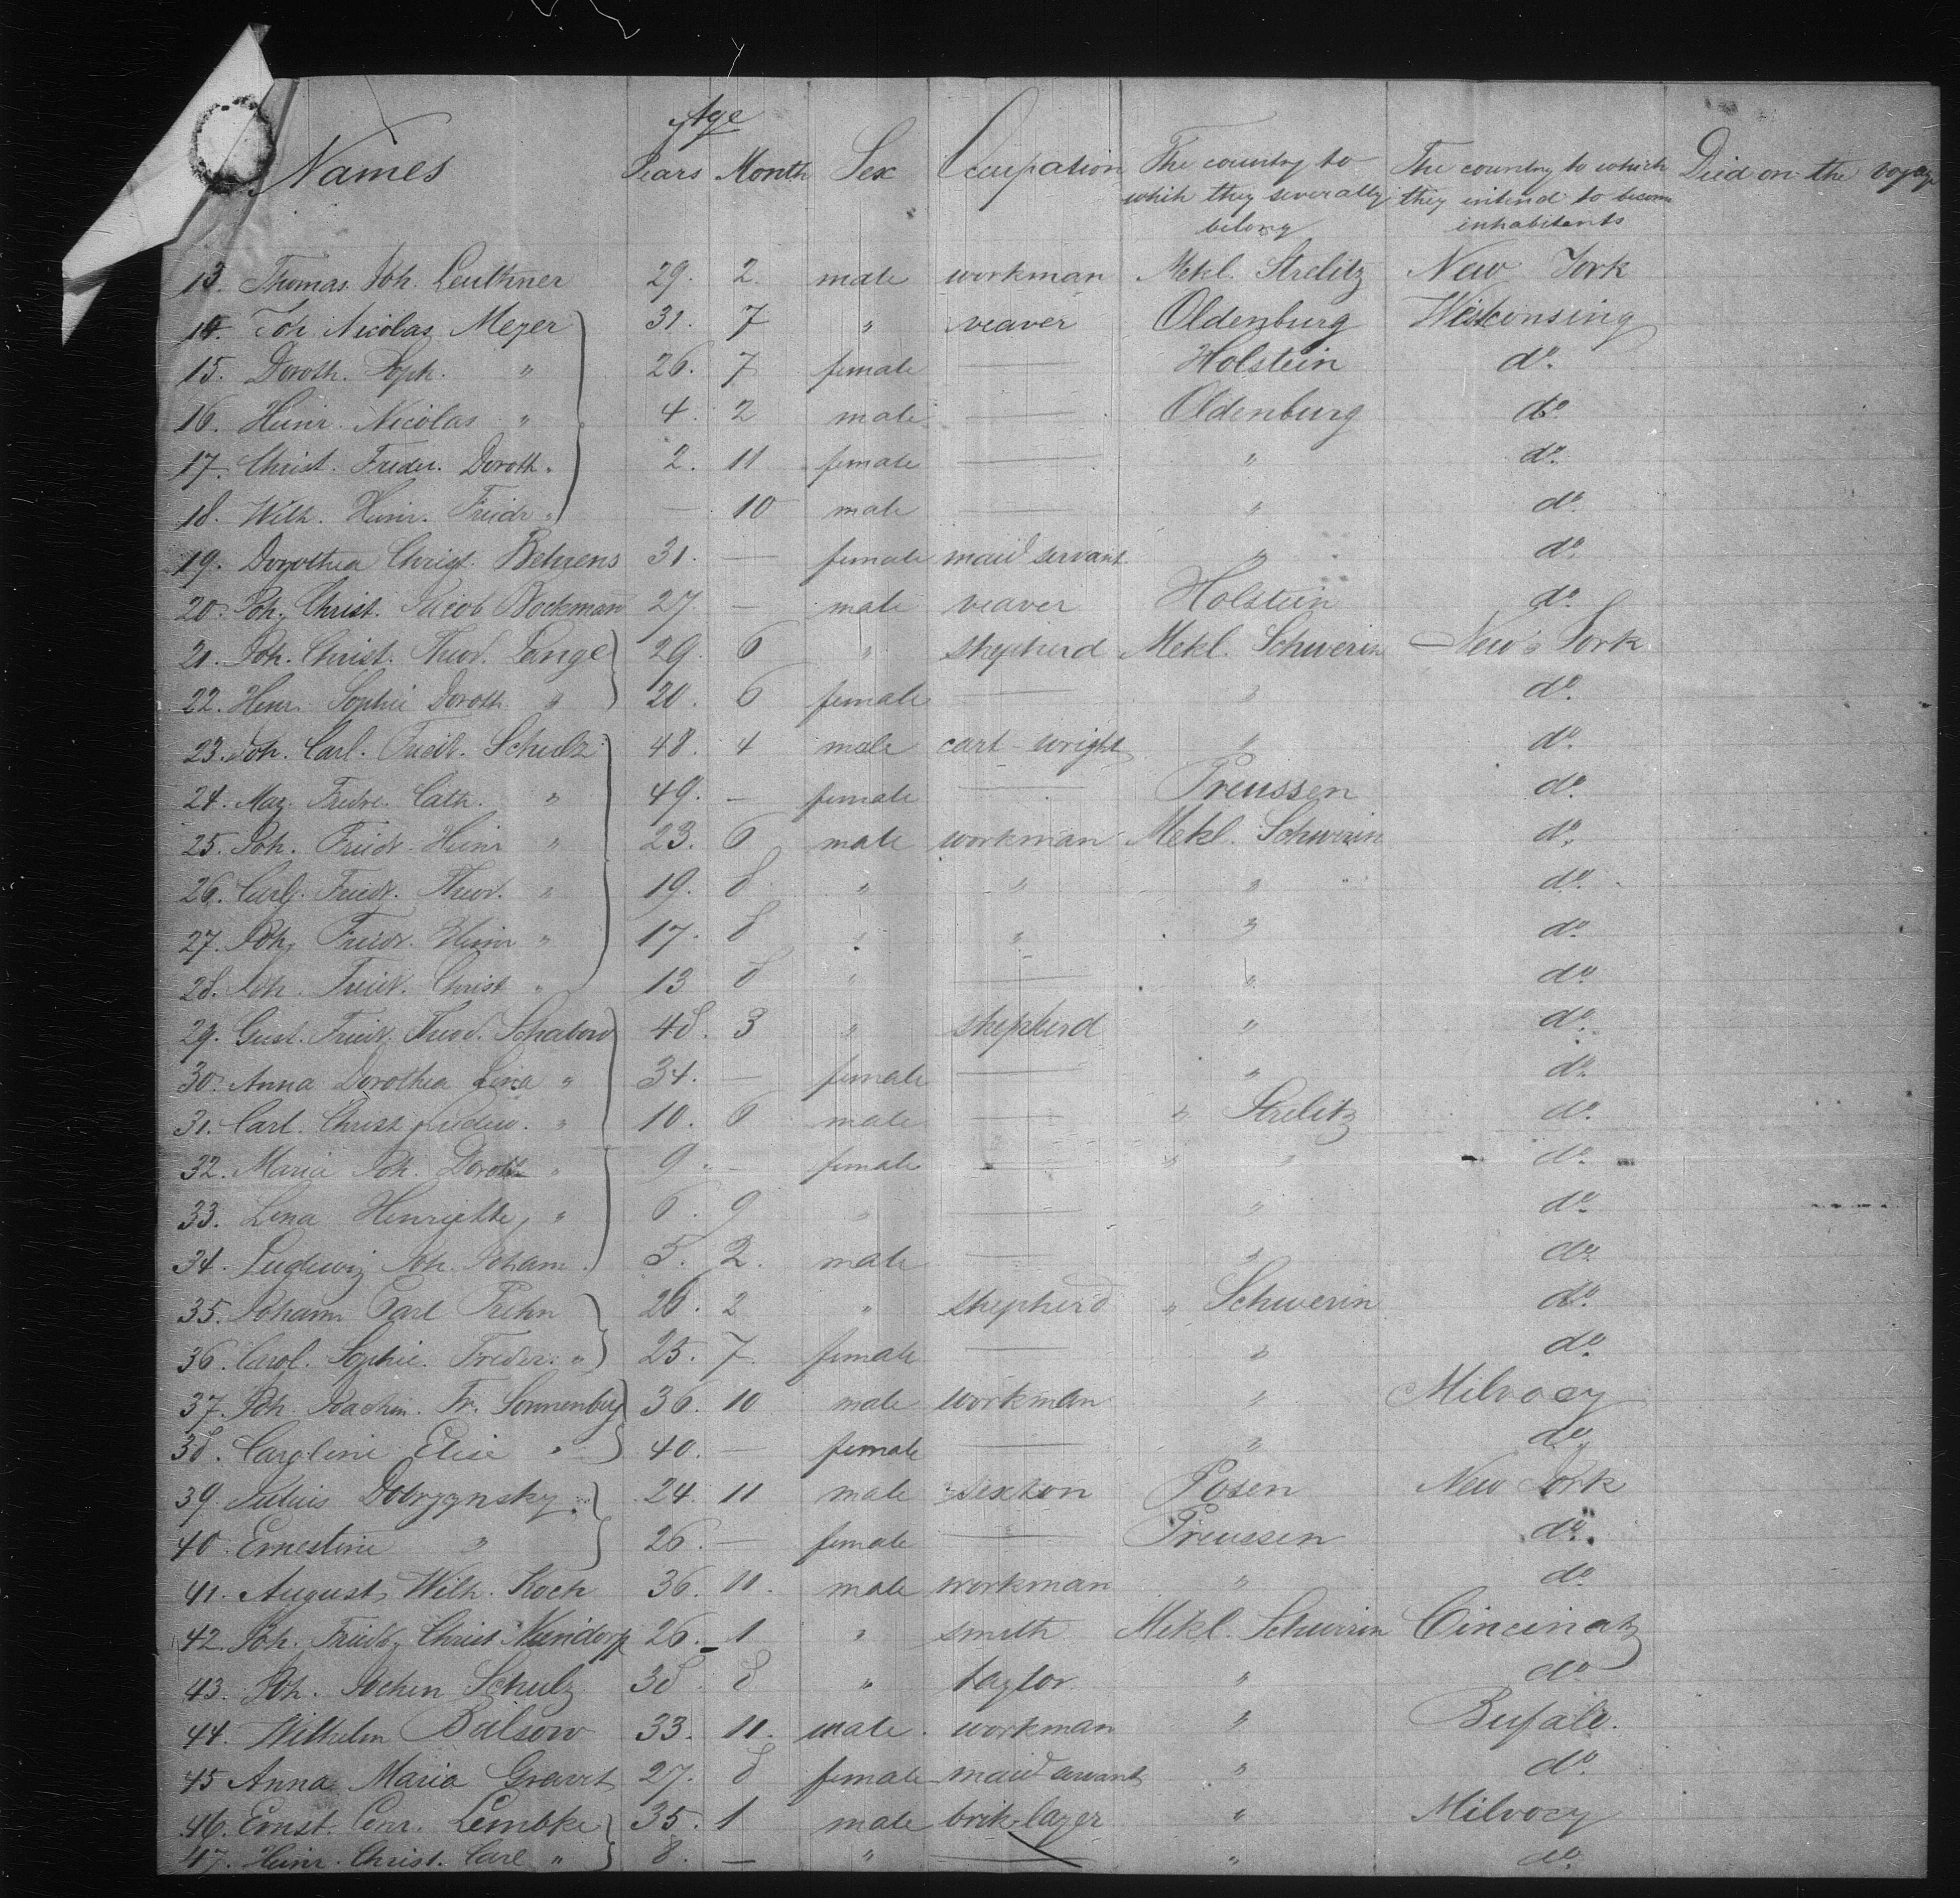 Names Age Years Month Sex Occupation The country to which they severally belong The country to which they intend to become inhabitants Died on the voyage
13. Thomas Joh. Leuthner 29. 2. male workman Mekl. Strelitz New York
14. Joh Nicolas Meyer 31. 7 " veaver Oldenburg Wisconsing
15. Doroth. Soph. " 26. 7 female — Holstein do.
16. Heinr. Nicolas " 4. 2 male — Oldenburg do
17. Christ. Frieder. Doroth. " 2. 11 female — " do.
18. Wilh. Heinr. Friedr " — 10 male — " do.
19. Dorothea Christ. Behrens 31. — female maid servant. " do.
20. Joh. Christ. Jacob Bockmann 27. — male veaver Holstein do.
21. Joh. Christ. Theod. Lange 29. 6 " shepherd Mekl. Schwerin New York
22. Henr. Sophie Doroth " 20. 6 female — " do.
23. Joh. Carl. Friedr. Schulz 48. 4 male cart-wright " do.
24. Mag. Fredre. Cath. " 49. — female — Preussen do.
25. Joh. Friedr. Heinr " 23. 6 male workman Mekl. Schwerin do.
26. Carl. Friedr. Theod. " 19. 8 " " " do.
27. Joh. Friedr. Heinr " 17. 8 " " " do.
28. Joh. Friedr. Christ " 13 8 " — " do.
29. Gust. Friedr. Theod. Schabow 48. 3 " shepherd " do.
30. Anna Dorothea Lena " 34. — female — " do.
31. Carl. Christ " 10. 6 male — " Strelitz do.
32. Maria Joh. Doroth " 9. — female — " " do.
33. Lena Henriette, " 6. 9 " — " do.
34. Ludewig Joh. Joham. 5. 2. male — " do.
35. Johann Carl Prehn 26. 2 " shepherd " Schwerin do.
36. Carol. Sophie. Freder. " 25. 7. female — " do.
37. Joh. Joachim. Fr. Sonnenberg 36. 10 male workman " Milvocy
38. Caroline Elise " 40. — female — " do.
39. Julius Dobrzynsky. 24. 11 male sexton Posen New York
40. Ernestine " 26. — female — Preussen do.
41. August Wilh. Koch 36. 11. male workman " do.
42. Joh. Friedr. Christ Neendorp 26. 1 " smith Mekl. Schwerin Cincinaty
43. Joh. Jochen Schulz 38. 8 " taylor " do
44. Wilhelm Balsow 33. 11. male. workman " Bufalo.
45 Anna Maria Gravert 27. 8 female maid servant " do.
46. Ernst. Lembke 35. 1 male brik-layer " Milvocy
47. Heinr. Christ. Carl " 8. — " — " do.